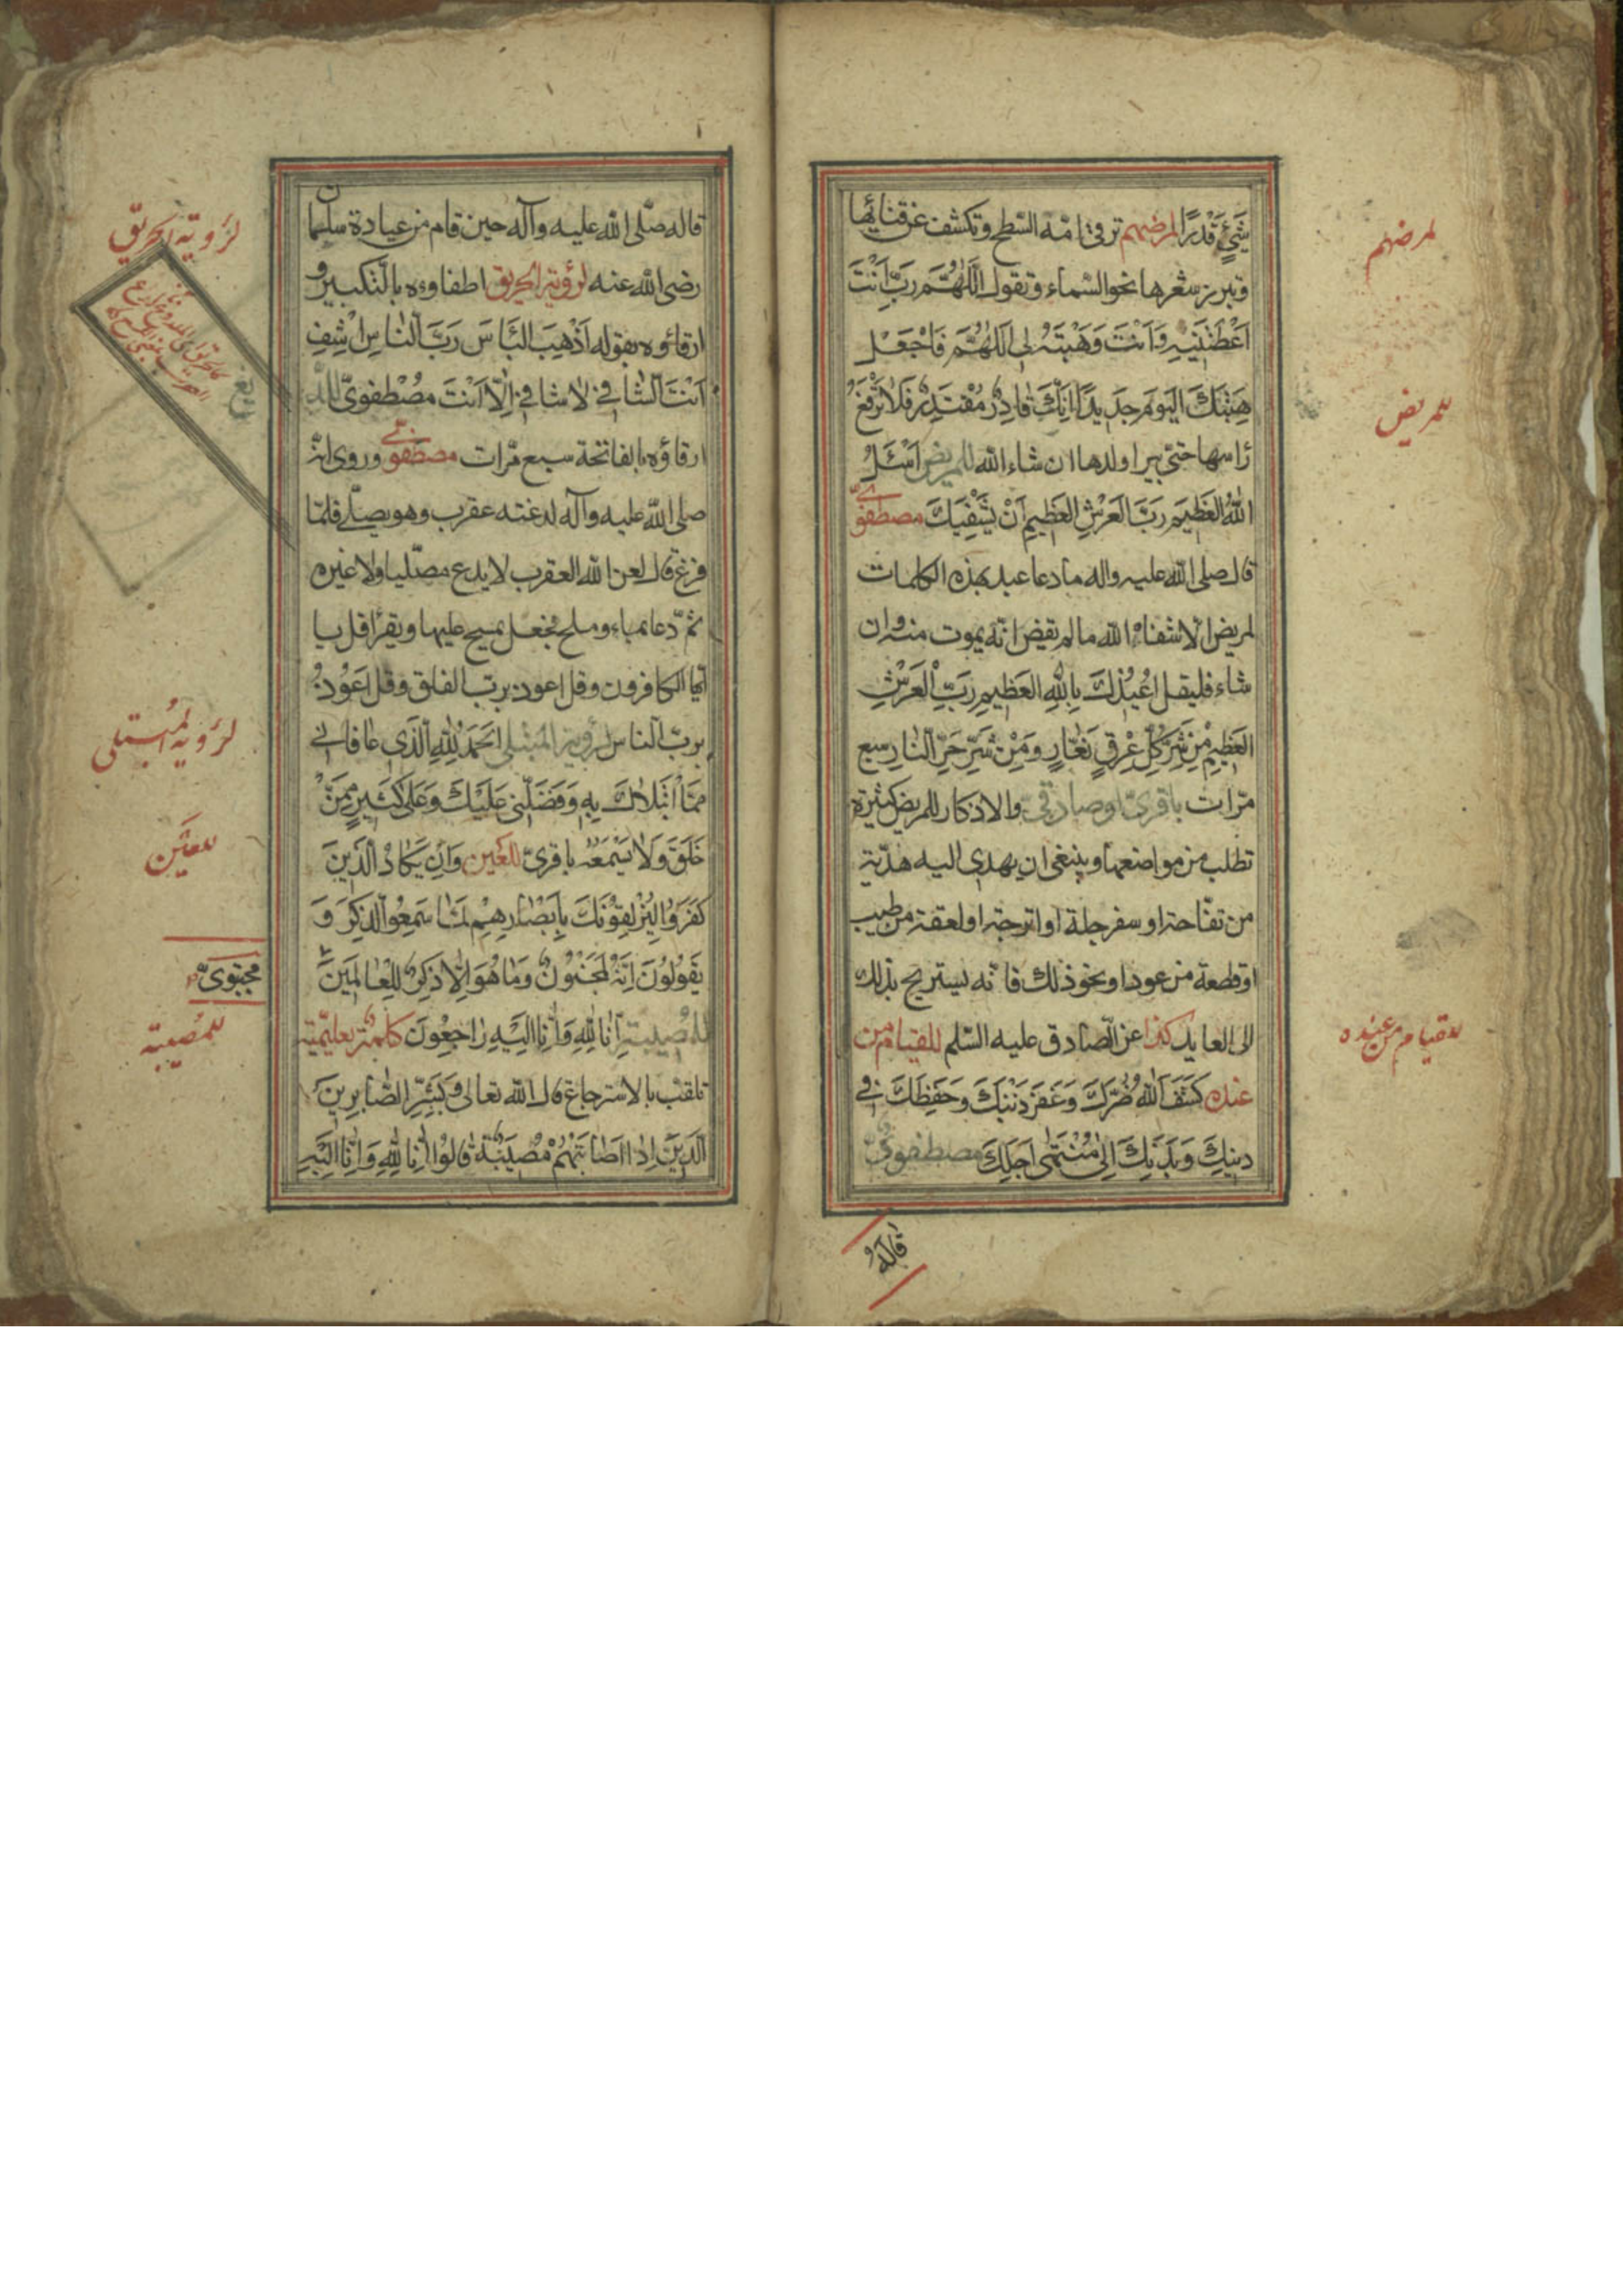 شَيْءٍ قَدْرًا لمرضهم ترقى امّه السّطح وتكشف عن قناعها
وتبرز شعرها نحو السّماء وتقول اَللّٰهُمَّ رَبِّ اَنْتَ
اَعْطَيْتَنِيهِ وَاَنْتَ وَهَبْتَهُ لِي اَللّٰهُمَّ فَاجْعَلْ
هِبَتَكَ الْيَوْمَ جَدِيدًا اِنَّكَ قَادِرٌ مُقْتَدِرٌ فلا ترفع
راسها حتّى يبرا ولدها ان شاء الله للمريض اَسْئَلُ
اللّٰهَ الْعَظِيمَ رَبَّ الْعَرْشِ الْعَظِيمِ اَنْ يَشْفِيَكَ مصطفويّ
قال صلى الله عليه واله ما دعا عبد بهذه الكلمات
لمريض الّا شفاه الله ما لم يقض انّه يموت منه وان
شاء فليقل اُعِيذُكَ بِاللّٰهِ الْعَظِيمِ رَبِّ الْعَرْشِ
الْعَظِيمِ مِنْ شَرِّ كُلِّ عِرْقٍ نَعَّارٍ وَمِنْ شَرِّ حَرِّ النَّارِ سبع
مرّات باقريّ او صادقيّ والاذكار للمريض كثيرة
تطلب من مواضعها وينبغي ان يهدى اليه هديّة
من تفّاحة او سفرجلة او اترجة او لعقة من طيب
او قطعة من عود او نحو ذلك فانّه يستريح بذلك
الى العايد كذا عن الصّادق عليه السّلم للقيام من
عنده كَشَفَ اللّٰهُ ضُرَّكَ وَغَفَرَ ذَنْبَكَ وَحَفِظَكَ فِي
دِينِكَ وَبَدَنِكَ اِلٰى مُنْتَهٰى اَجَلِكَ مصطفويّ
قَالَهُ
لمرضهم
للمريض
للقيام من عنده
قاله صلّى الله عليه وآله حين قام من عيادة سلمان
رضى الله عنه لرؤية الحريق اطفاؤه بالتّكبير و
ارقاؤه بقوله اَذْهِبِ الْبَأسَ رَبَّ النَّاسِ اشْفِ
اَنْتَ الشَّافِي لَا شَافِيَ اِلَّا اَنْتَ مُصْطفويّ للّدغ
ارقاؤه بالفاتحة سبع مرّات مصطفويّ وروى انّه
صلى الله عليه وآله لدغته عقرب وهو يصلّي فلمّا
فرغ قال لعن الله العقرب لا يدع مصلّيا ولا غيره
ثمّ دعا بماء وملح فجعل يمسح عليها ويقرأ قل يا
ايّها الكافرون وقل اعوذ بربّ الفلق وقل اَعُوذُ
بربّ الناس لرؤية المبتلى اَلْحَمْدُ لِلّٰهِ الَّذِي عَافَانِي
مِمَّا ابْتَلَاكَ بِهِ وَفَضَّلَنِي عَلَيْكَ وَعَلٰى كَثِيرٍ مِمَّنْ
خَلَقَ وَلَا يَسْمَعُهُ باقريّ للعين وَاِنْ يَكَادُ الَّذِينَ
كَفَرُوا لَيُزْلِقُونَكَ بِاَبْصَارِهِمْ لَمَّا سَمِعُوا الذِّكْرَ وَ
يَقُولُونَ اِنَّهُ لَمَجْنُونٌ وَمَا هُوَ اِلَّا ذِكْرٌ لِلْعَالَمِينَ
للمصيبة اِنَّا لِلّٰهِ وَاِنَّا اِلَيْهِ رَاجِعُونَ كلمة تعليميّة
تلقب بالاسترجاع قال الله تعالى وَبَشِّرِ الصَّابِرِينَ
الَّذِينَ اِذَا اَصَابَتْهُمْ مُصِيبَةٌ قَالُوا اِنَّا لِلّٰهِ وَاِنَّا اِلَيْهِ
لرؤية الحريق
لرؤية المُبتلى
للعَيْن
مجتبويّ
للمصيبة